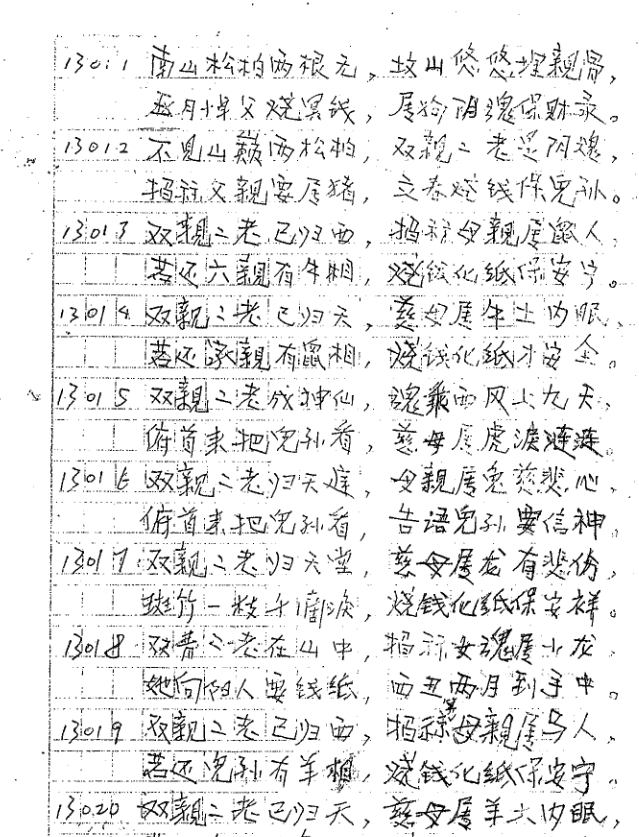 13011 南山松柏两根无，故山悠悠埋亲骨，
亥月悼父烧冥钱，属狗阴魂保财录。
13012 不见山巅两松柏，双親二老是阴魂，
招称父親要属猪，立春烧钱保児孙。
13013 双親二老已归西，招称母親属鼠人，
若还六親有牛相，烧钱化纸保安宁。
13014 双親二老已归天，慈母属牛土内眠，
若还親有鼠相，烧钱化纸才安全。
13015 双親二老成神仙，魂乘西风上九天，
俯首来把児孙看，慈母属虎涙涟涟。
13016 双親二老归天庭，母親属兔慈悲心，
俯首来把児孙看，告语児孙要信神。
13017 双親二老归天堂，慈母属龙有悲伤，
斑竹一枝千滴涙，烧钱化纸保安祥。
13018 双老在山中，招称女魂属小龙
她向阳人要钱纸，西丑两月到手中。
13019 双親二老已归西，招称母親属马人，
若还児孙有羊相，烧钱化纸保安宁。
13020 双親二老已归天，慈母属羊土内眠，